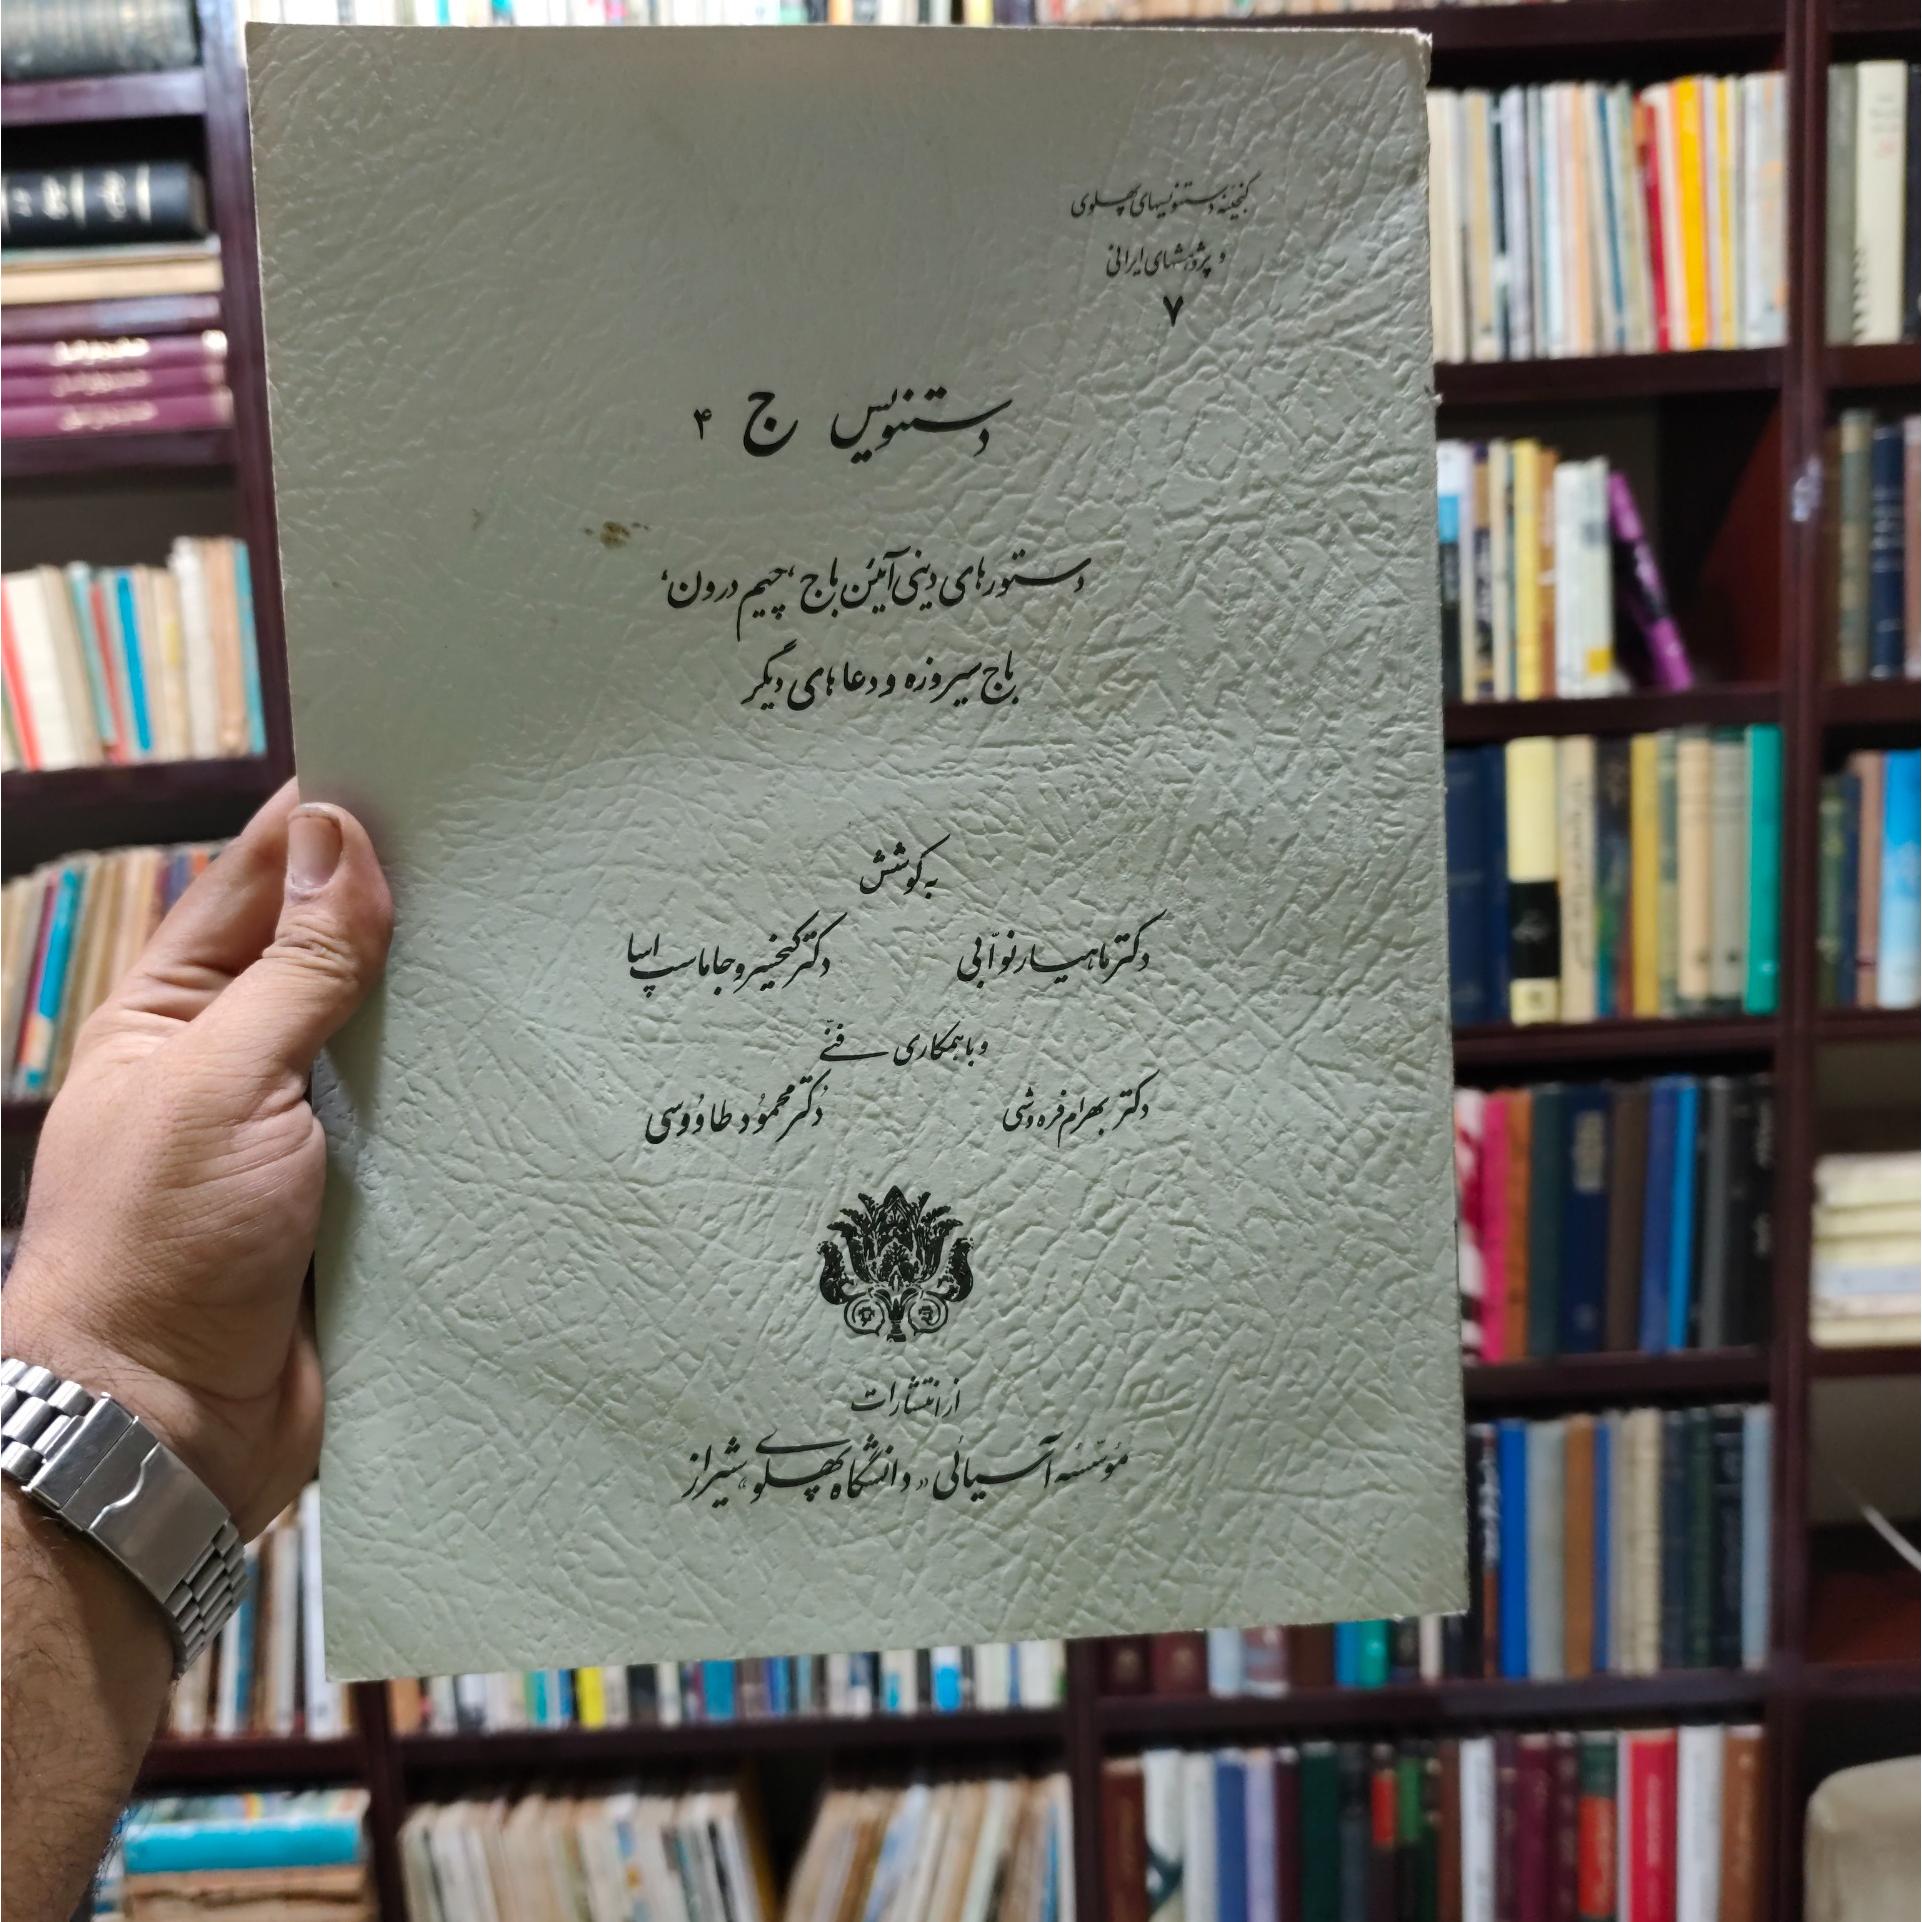 گنجینهٔ دستنویسهای پهلوی
و پژوهشهای ایرانی
۷
دستنویس ج ۴
دستورهای دینی آیین باج ،چیم درون،
باج سیروزه و دعاهای دیگر
به کوشش
دکتر ماهیار نوّابی دکتر کیخسرو جاماسپ اسا
و با همکاری فنّی
دکتر بهرام فره‌وشی دکتر محمود طاووسی
از انتشارات
مؤسّسهٔ آسیائی «دانشگاه پهلوی» شیراز